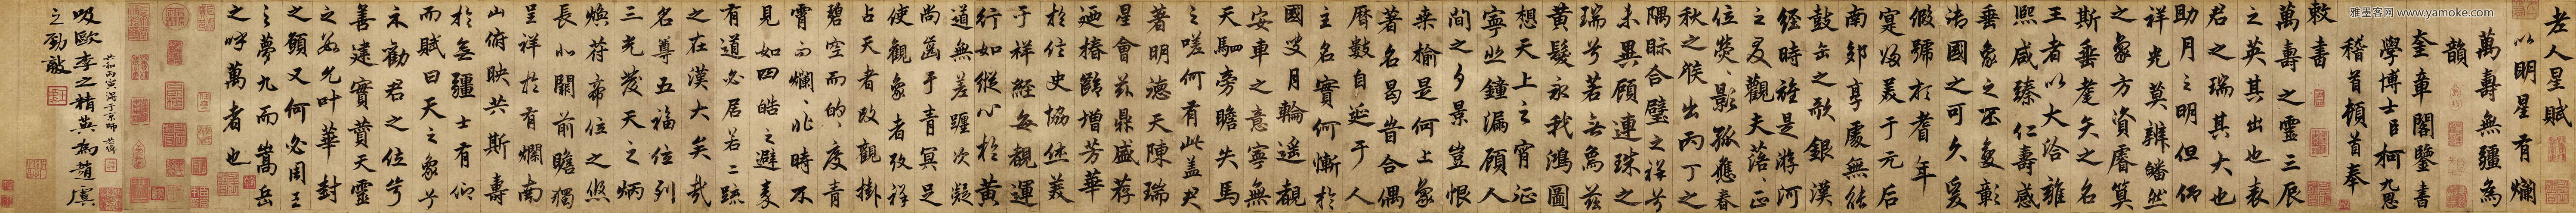 老人星賦
以明星有爛
萬壽無疆為
韻
奎章閣鑒書
學博士臣柯九思
稽首頓首奉
敕書
萬壽之靈三辰
之英其出也表
君之瑞其大也
助月之明但仰
祥光莫辨皤然
之象方資睿算
斯垂耄矣之名
王者以大洽雍
熙咸臻仁壽感
垂象之丕變彰
法國之可久爰
假號於耆年
寔美于元后
南郊享處無能
鼓缶之歌銀漢
經時詎是游河
之叟觀夫落落正
位熒熒影孤應春
秋之候出丙丁之
隅眎合璧之祥兮
未異顧連珠之
瑞兮若無為茲
黃髮永我鴻圖
想天上之宵征
寧愁鐘漏顧人
間之夕景豈恨
桑榆是何上象
著名曷嘗合偶
曆數自延于人
主名實何慚於
國叟月輪遙覩
安車之意寧無
天駟旁瞻失馬
之嗟何有此蓋
著明德天陳瑞
星會茲鼎盛荐
迺椿齡增芳華
於信史協休義
于祥經每覩運
行如縱心於黃
道無差躔次凝
尚齒于青冥足
使觀象者攷祥
占天者改觀掛
碧空而的的度青
霄而爛爛非時不
見如四皓之避秦
有道必居若二疏
之在漢大矣哉
名尊五福位列
三光發天之炳
煥符帝位之悠
長北闕前瞻獨
呈祥於有爛南
山俯映共斯壽
於無疆士有仰
而賦曰天之象兮
示勸君之位兮
善建實賚天靈
之允叶華封
之願又何必周王
之夢九而嵩岳
之呼萬者也
吸歐李之精英為趙虞
之勁敵
雅墨客网 www.yamoke.com